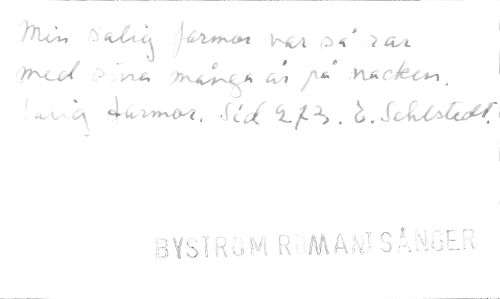 Min salig farmor var så rar
med sina många år på nacken.
Salig farmor. Sid 273. E. Sehlstedt.
BYSTRÖM ROMANT SÅNGER